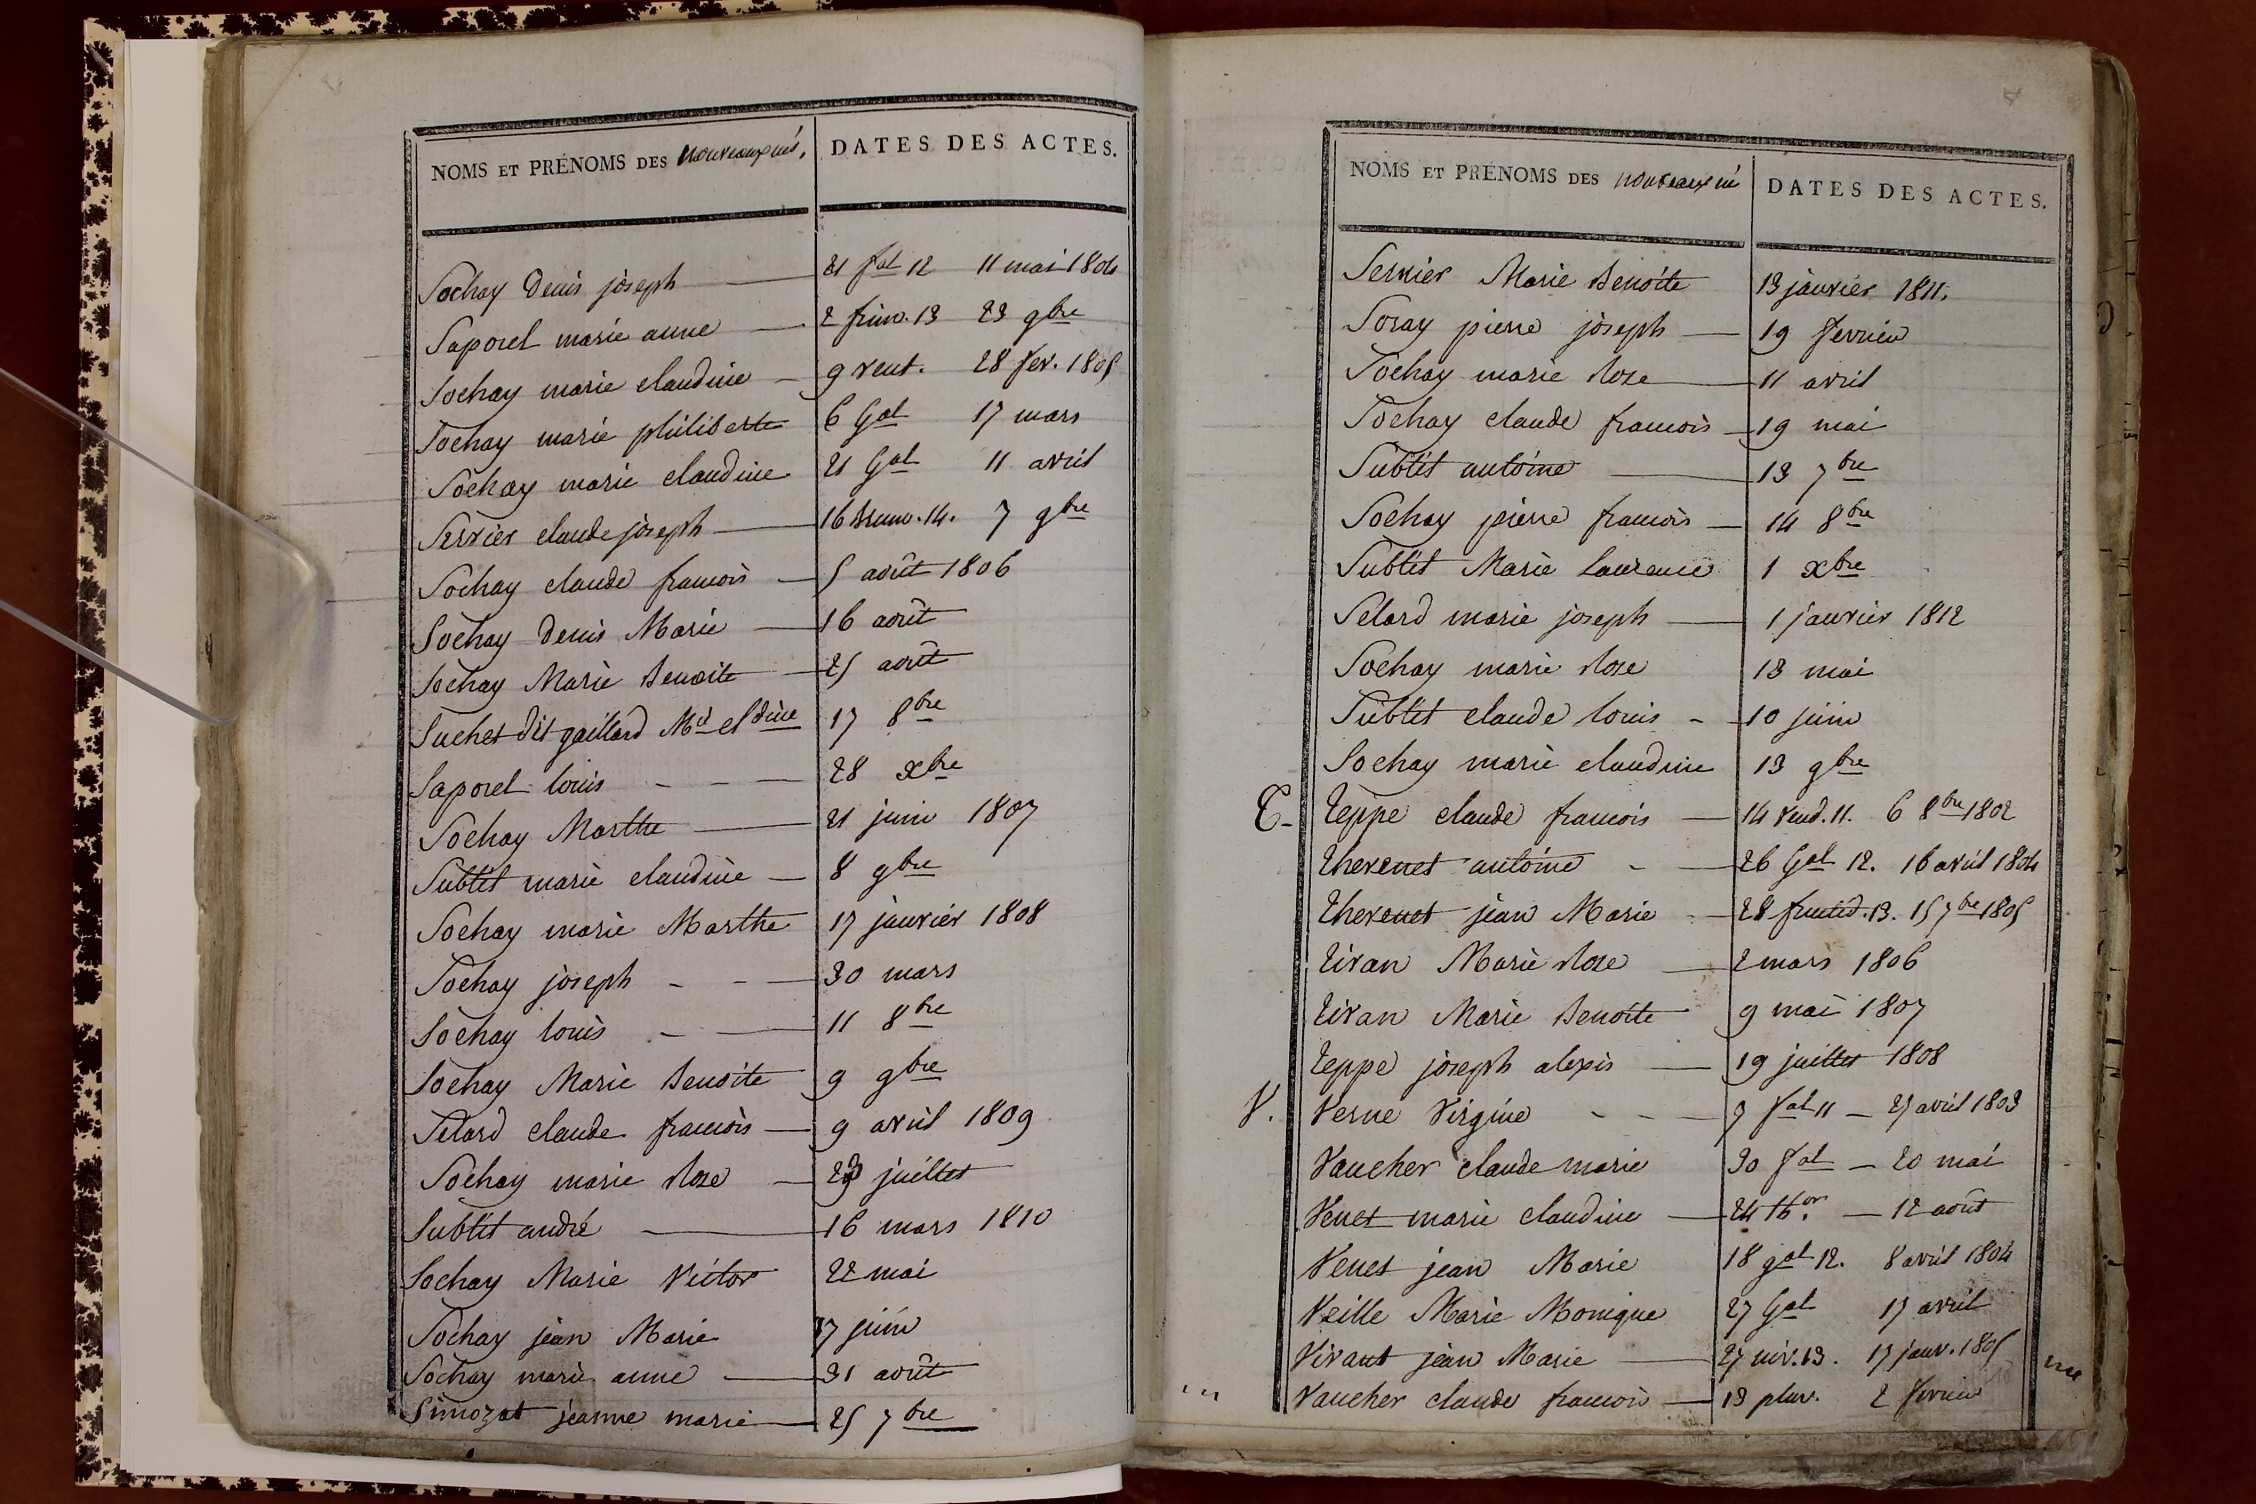 NOMS ET PRÉNOMS DES nouveaux nés. DATES DES ACTES.
Sochay Denis joseph 21 fal 12 11 mai 1804
Saporel marie anne 2 frim. 13 23 9bre
Sochay marie claudine 9 vent. 28 fev. 1805
Sochay marie philiberte 6 Gal 17 mars
Sochay marie claudine 21 Gal 11 avril
Servier claude joseph 16 Brum. 14. 7 9bre
Sochay claude francois 5 août 1806
Sochay Denis Marie 16 août
Sochay Marie Benoite 25 août
Suchet dit gaillard Mie Cldine 17 8bre
Saporel louis 28 xbre
Sochay Marthe 21 juin 1807
Subtit marie claudine 8 9bre
Sochay marie Marthe 17 janvier 1808
Sochay joseph 30 mars
Sochay louis 11 8bre
Sochay Marie Benoite 9 9bre
Selard claude francois 9 avril 1809
Sochay marie Roze juillet
Subtit andré 16 mars 1810
Sochay Marie Victor 22 mai
Sochay jean Marie 17 juin
Sochay marie anne 31 août
Simozat jeanne marie 25 7bre
NOMS ET PRÉNOMS DES nouveaux né DATES DES ACTES.
Servier Marie Benoite 13 janvier 1811.
Soray pierre joseph 19 fevrier
Sochay marie Roze 11 avril
Sochay claude francois 19 mai
Subtit antoine 13 7bre
Sochay pierre francois 14 8bre
Subtit Marie Laurence 1 xbre
Selard marie joseph 1 janvier 1812
Sochay marie Rose 13 mai
Subtit claude louis 10 juin
Sochay marie claudine 13 9bre
T. Teppe claude francois 14 vend. 11. 6 8bre 1802
Thevenet antoine 26 Gal 12. 16 avril 1804
Thevenet jean Marie 28 fructid. 13. 15 7bre 1805
Tivan Marie Roze 2 mars 1806
Tivan Marie Benoite 9 mai 1807
Teppe joseph alexis 19 juillet 1808
V. Verne Virginie 7 fal 11 27 avril 1803
Vaucher claude marie 30 fal 20 mai
Venet marie claudine 24 thor. 12 août
Venet jean Marie 18 gal 12. 8 avril 1804
Veille Marie Monique 27 Gal 17 avril
Vivant jean Marie 27 niv. 13. 17 janv. 1805
Vaucher claude francois 13 pluv. 2 fevrier